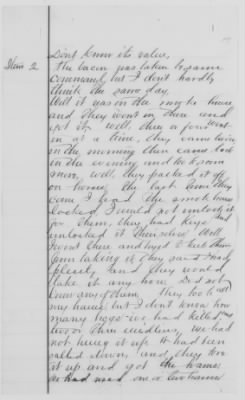 Dont know its value,
Item 2
The bacon was taken by same
command, but I don't hardly
think the same day.
Well it was in the smoke house
and they went in there and
got it, well, they a few went
in at a time, they came
in the morning then came back
in the evening and took some
more, well, they packed it off
on horses, the last time they
came I had the smoke house
locked I would not unlock it
for them, they had keys and
unlocked it themselves. Well
I went there and tried to keep them
from taking it they said I had
plenty, and they would
take it any how. Did not
know any of them. They took all
my hams but I dont know how
many hogs we had killed, and
two or three middlins, we had
not hung it up. It had been
salted down, and they took
it up and got the hams.
We had used one or two hams